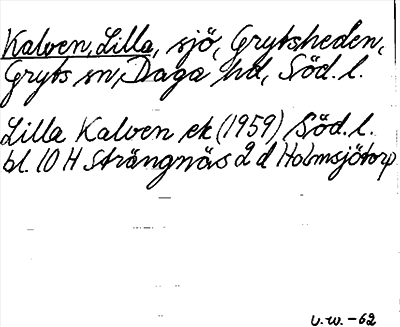 Kalven, Lilla, sjö, Grytsheden,
Gryts sn, Daga hd, Söd. l.
Lilla Kalven ek (1959) Söd. l.
bl. 10 H Strängnäs 2 d Holmsjötorp
U.W. -62